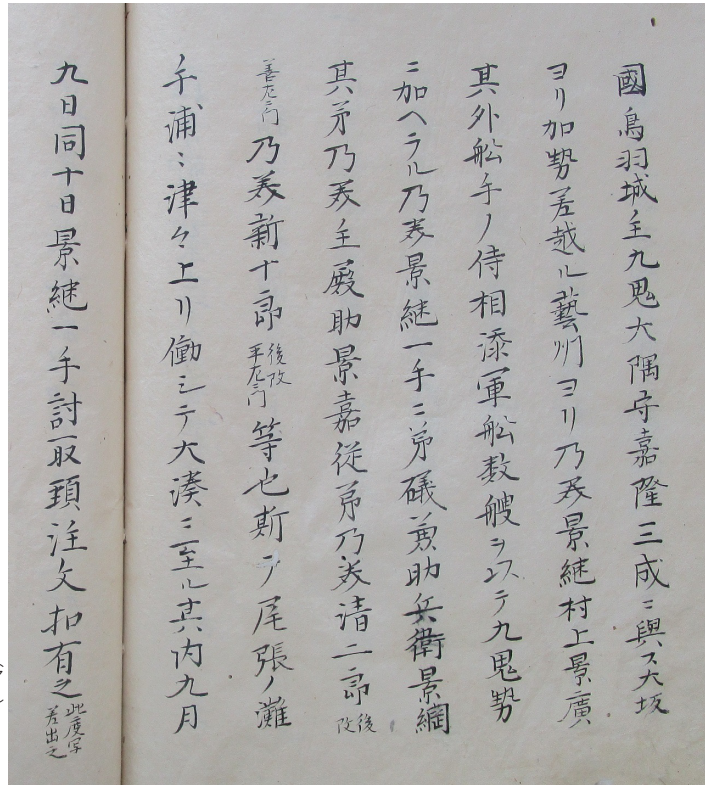 國鳥羽城主九鬼大隅守嘉隆三成ニ與ス大坂
ヨリ加勢差越ル藝州ヨリ乃美景継村上景廣
其外舩手ノ侍相添軍舩数艘ヲ以テ九鬼勢
ニ加ヘラル乃美景継一手ニ弟礒兼助兵衛景綱
其弟乃美主殿助景嘉従弟乃美清二郎後改
善左エ門乃美新十郎後改平左エ門等也斯テ尾張ノ灘
ノ手浦々津々上リ働シテ大湊ニ至ル其内九月
九日同十日景継一手討取頚注文扣有之此度写差出之